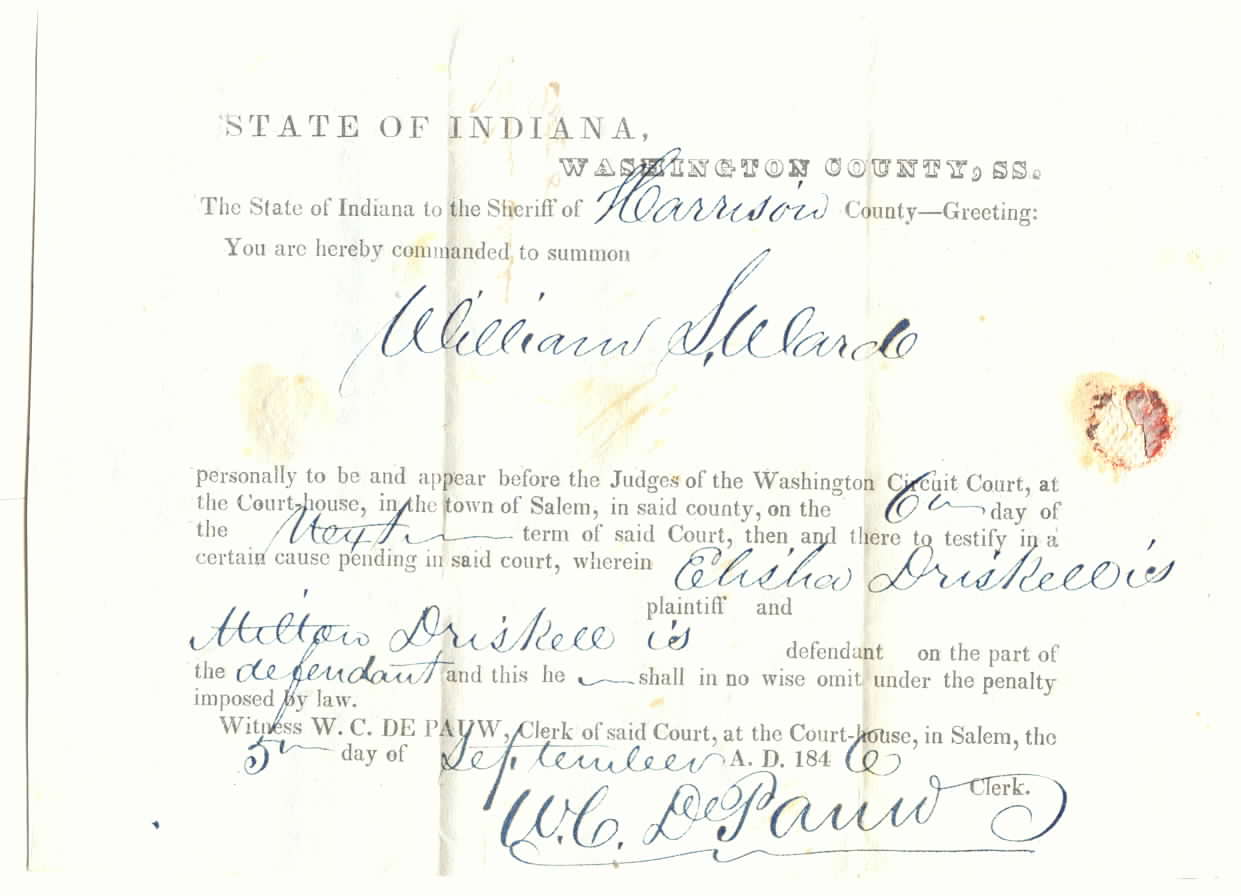 STATE OF INDIANA,
WASHINGTON COUNTY, SS.
The State of Indiana to the Sheriff of Harrison County—Greeting:
You are hereby commanded to summon
William S. Ward
personally to be and appear before the Judges of the Washington Circuit Court, at
the Court-house, in the town of Salem, in said county, on the 6th day of
the Next term of said Court, then and there to testify in a
certain cause pending in said court, wherein Elisha Driskell is
plaintiff and
Milton Driskell is defendant on the part of
the defendant and this he shall in no wise omit under the penalty
imposed by law.
Witness W. C. DE PAUW, Clerk of said Court, at the Court-house, in Salem, the
5th day of September A. D. 1846
W. C. DePauw Clerk.